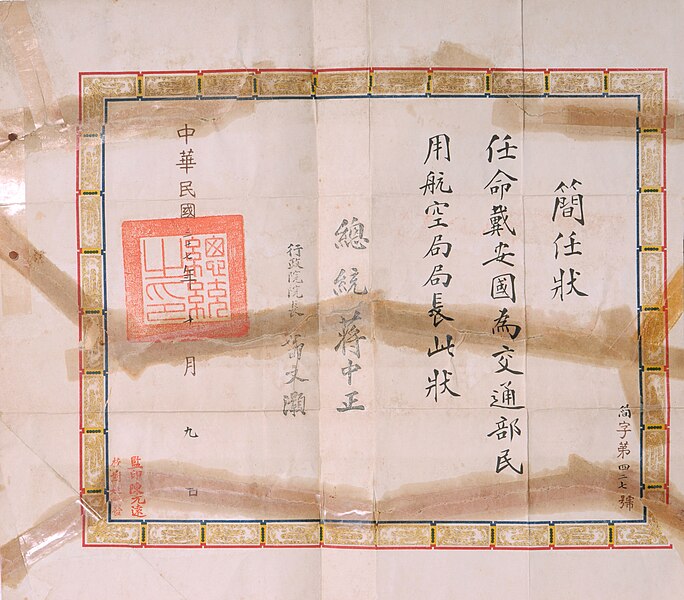 簡任狀
任命戴安國為交通部民
用航空局局長此狀
總統蔣中正
行政院院長翁文灝
中華民國三十七年十月九日
簡字第四二七號
總統之印
監印陳光遠